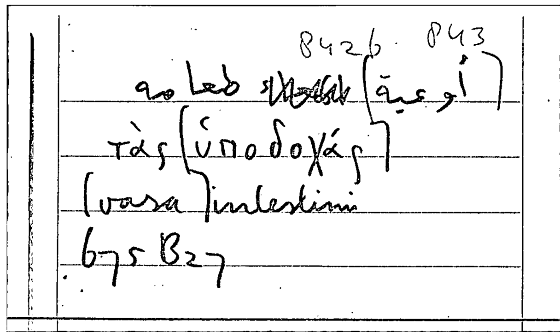 8426. 843
[أوعية] طعامه
τὰς [ὑποδοχάς]
[vasa] intestini
675 B27